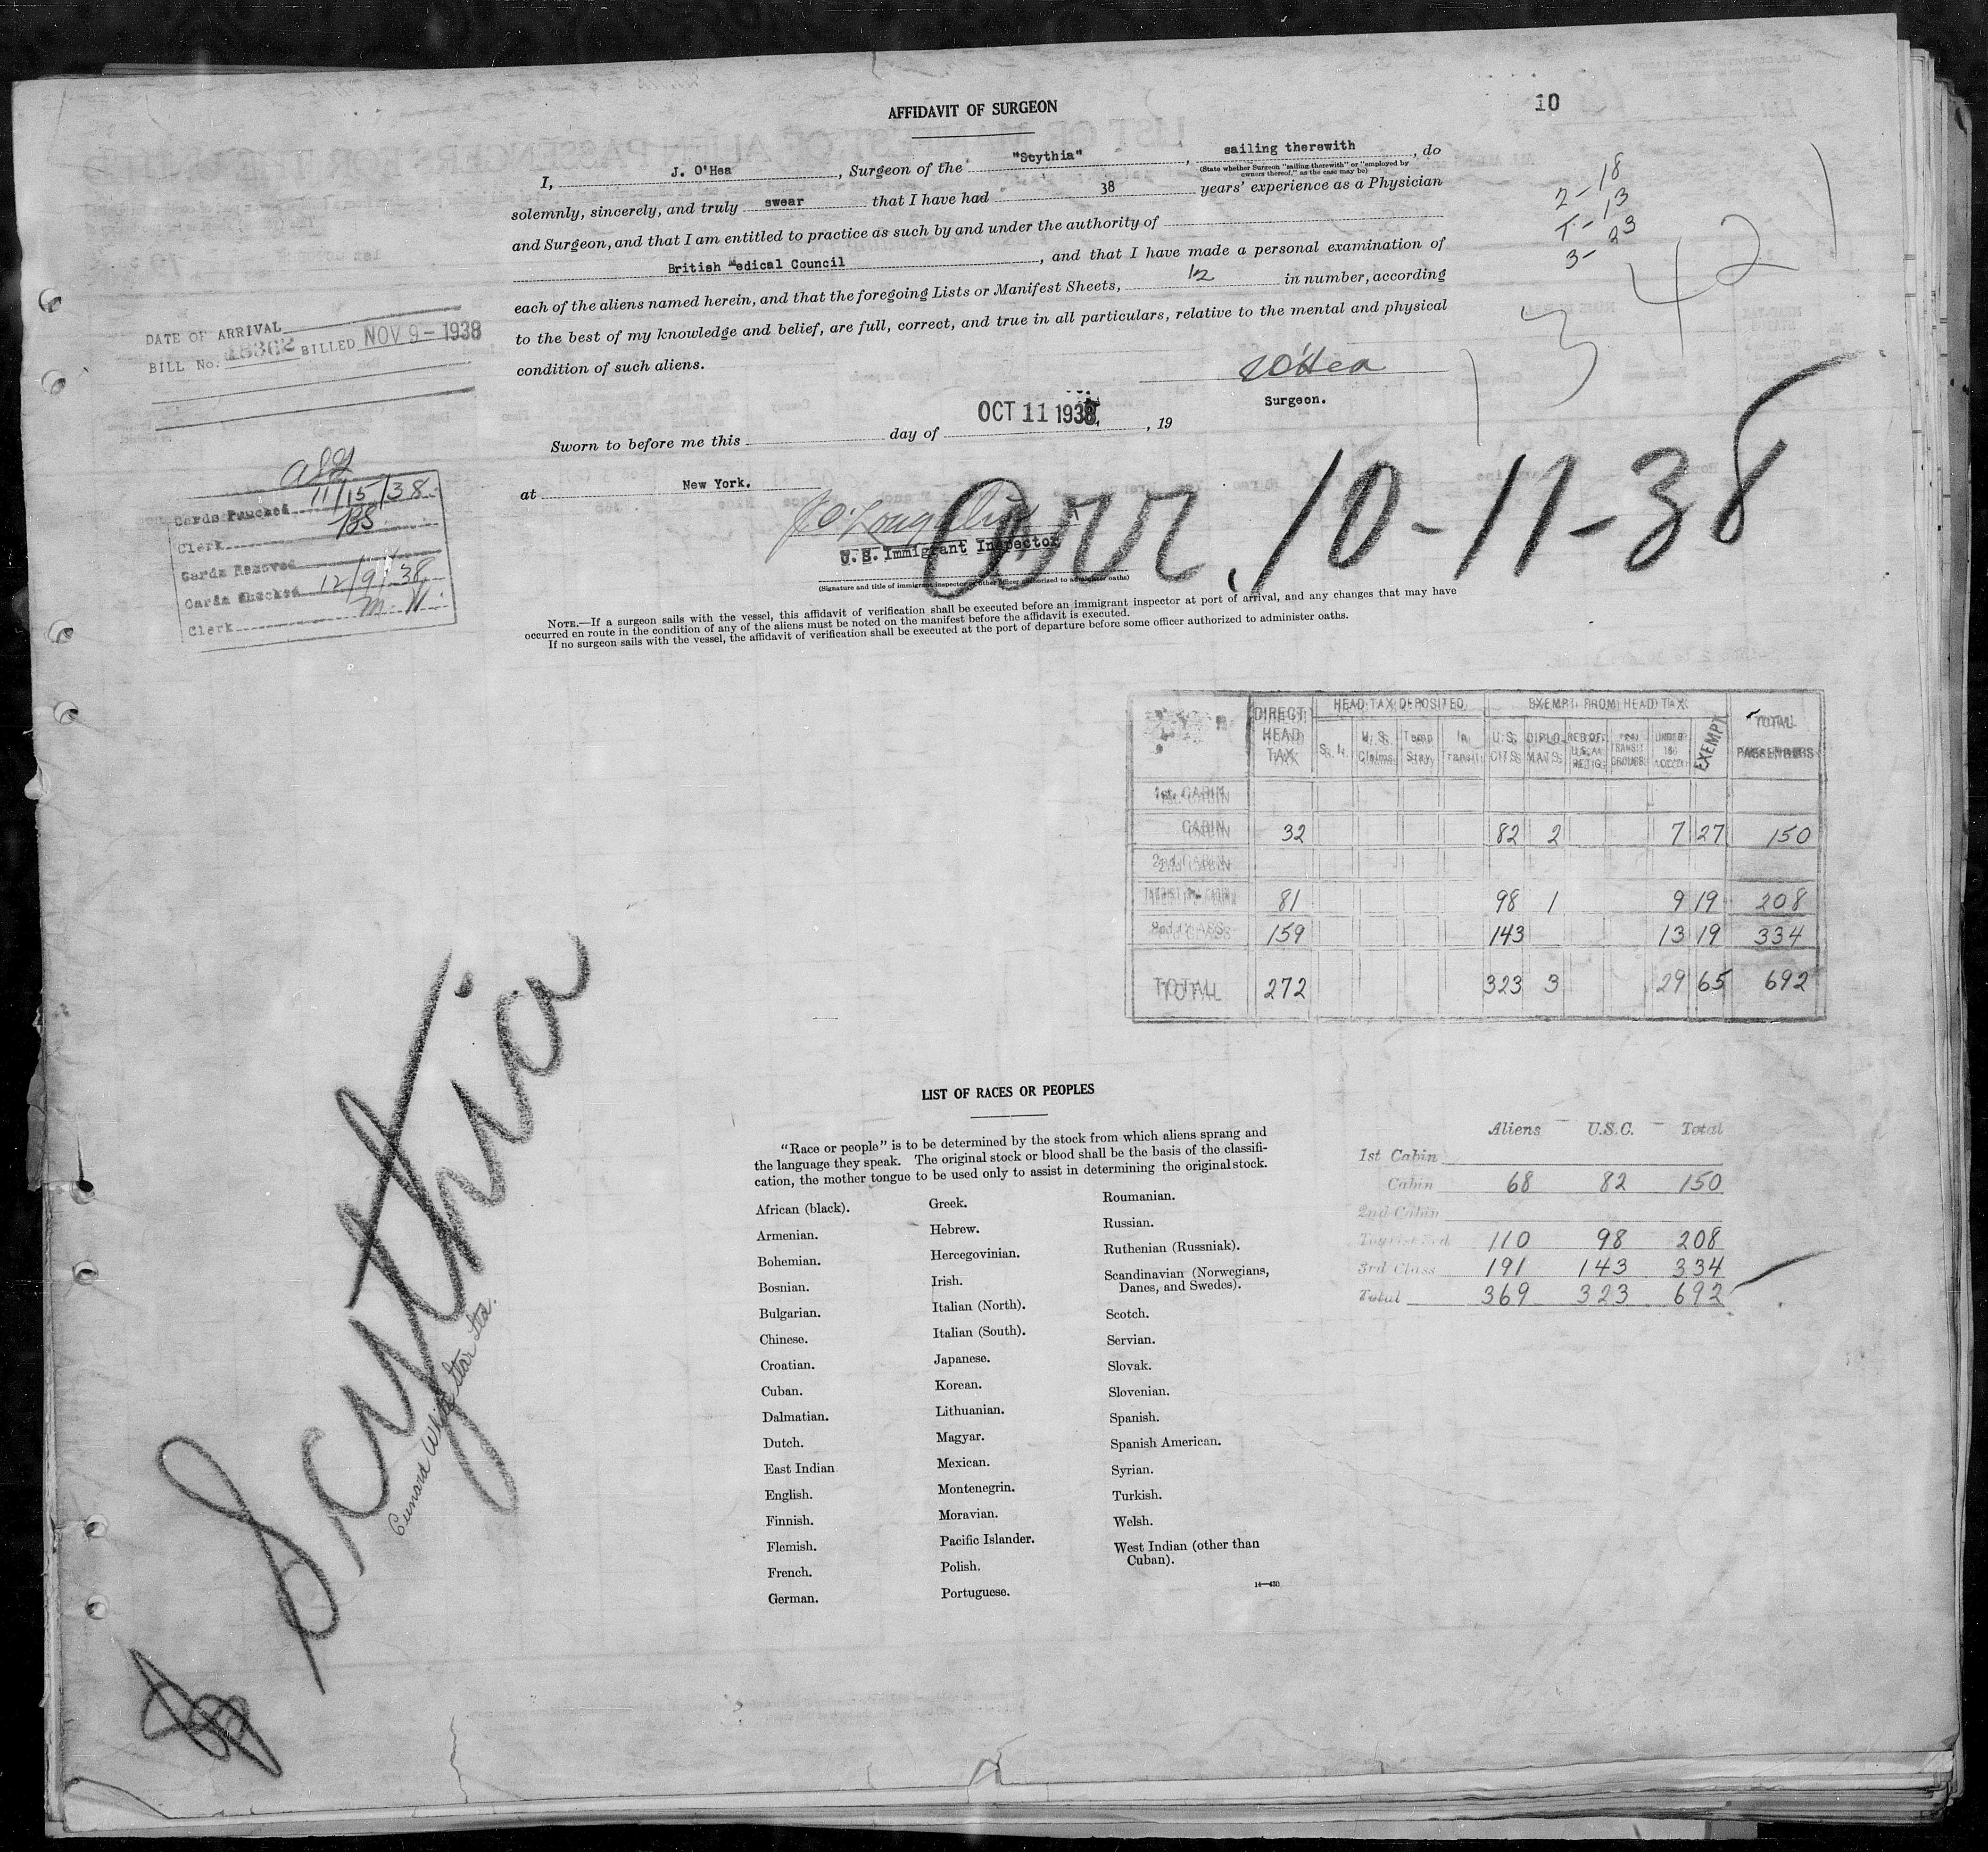 10
AFFIDAVIT OF SURGEON
I, J. O'Hea, Surgeon of the "Scythia", sailing therewith, do
(State whether Surgeon "sailing therewith" or "employed by owners thereof," as the case may be)
solemnly, sincerely, and truly swear that I have had 38 years' experience as a Physician
and Surgeon, and that I am entitled to practice as such by and under the authority of
British Medical Council, and that I have made a personal examination of
each of the aliens named herein, and that the foregoing Lists or Manifest Sheets, 12 in number, according
to the best of my knowledge and belief, are full, correct, and true in all particulars, relative to the mental and physical
condition of such aliens.
O'Hea
Surgeon.
Sworn to before me this day of OCT 11 1938, 19
at New York.
U. S. Immigrant Inspector
(Signature and title of immigrant inspector or other officer authorized to administer oaths)
Arr. 10-11-38
2-18
T-13
3-23
342
DATE OF ARRIVAL
BILL No. BILLED NOV 9-1938
Cards Punched 11/15/38
Clerk BS
Cards Removed
Cards Checked 12/9/38
Clerk M. W.
NOTE.—If a surgeon sails with the vessel, this affidavit of verification shall be executed before an immigrant inspector at port of arrival, and any changes that may have
occurred en route in the condition of any of the aliens must be noted on the manifest before the affidavit is executed.
If no surgeon sails with the vessel, the affidavit of verification shall be executed at the port of departure before some officer authorized to administer oaths.
DIRECT HEAD TAX HEAD TAX DEPOSITED EXEMPT FROM HEAD TAX TOTAL PASSENGERS
S. I. U. S. Claims Temp Stay In Transit U. S. CITS DIPLO MATS RES OF U.S.A. RETIG TRANSIT GROUPS UNDER 16 ACCOM EXEMPT
1st. CABIN
CABIN 32 82 2 7 27 150
2nd CABIN
TOURIST 3rd CABIN 81 98 1 9 19 208
3rd CLASS 159 143 13 19 334
TOTAL 272 323 3 29 65 692
Scythia
Cunard White Star Ltd.
LIST OF RACES OR PEOPLES
"Race or people" is to be determined by the stock from which aliens sprang and
the language they speak. The original stock or blood shall be the basis of the classifi-
cation, the mother tongue to be used only to assist in determining the original stock.
African (black).
Armenian.
Bohemian.
Bosnian.
Bulgarian.
Chinese.
Croatian.
Cuban.
Dalmatian.
Dutch.
East Indian
English.
Finnish.
Flemish.
French.
German.
Greek.
Hebrew.
Hercegovinian.
Irish.
Italian (North).
Italian (South).
Japanese.
Korean.
Lithuanian.
Magyar.
Mexican.
Montenegrin.
Moravian.
Pacific Islander.
Polish.
Portuguese.
Roumanian.
Russian.
Ruthenian (Russniak).
Scandinavian (Norwegians,
Danes, and Swedes).
Scotch.
Servian.
Slovak.
Slovenian.
Spanish.
Spanish American.
Syrian.
Turkish.
Welsh.
West Indian (other than
Cuban).
14—430
Aliens U.S.C. Total
1st Cabin
Cabin 68 82 150
2nd Cabin
Tourist 3rd 110 98 208
3rd Class 191 143 334
Total 369 323 692